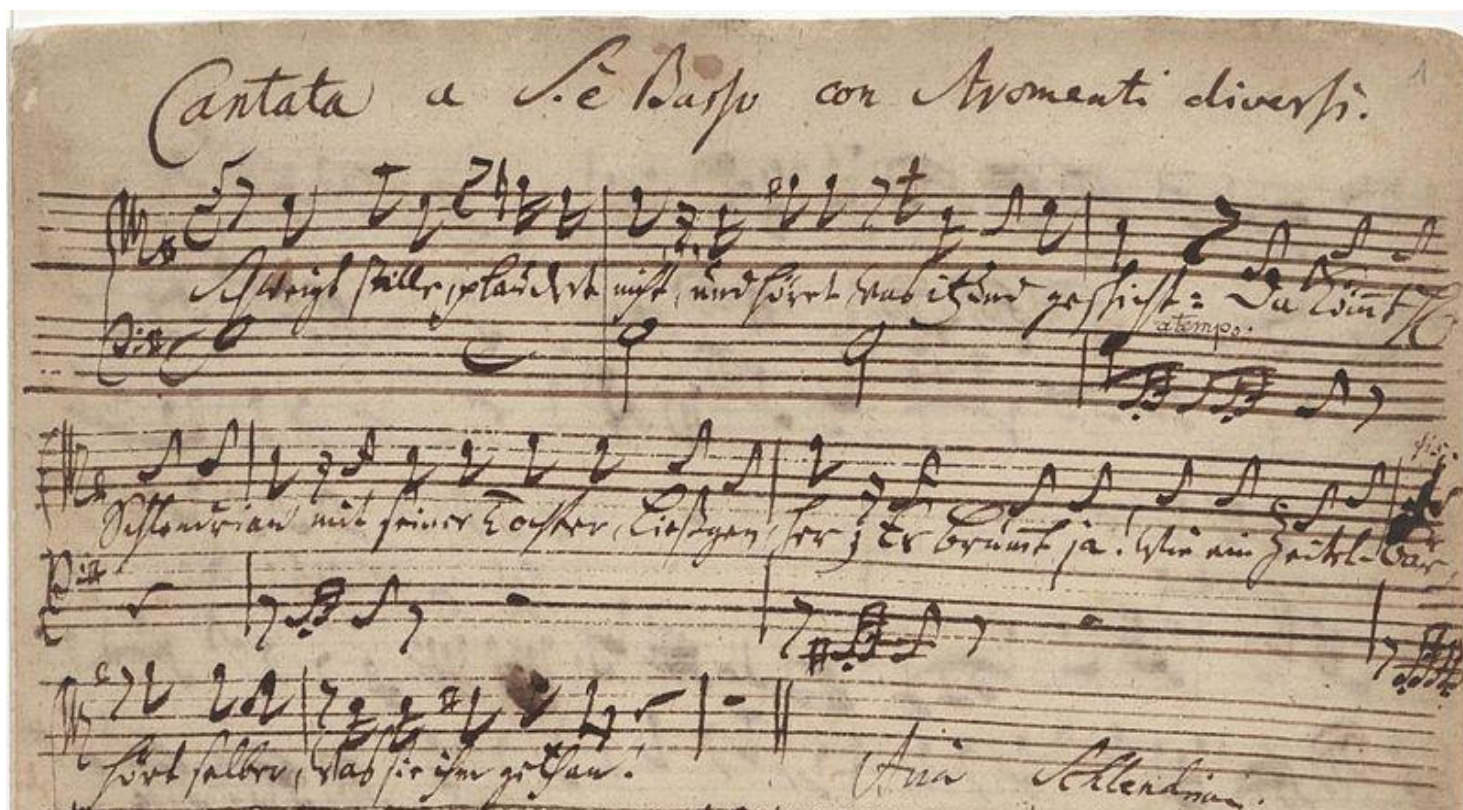 Cantata a S. è Basso con Stromenti diversi.
1
Schweigt stille, plaudert nicht, und höret was itzund geschicht: Da kömt H
atempo.
Schlendrian mit seiner Tochter, Ließgen her; Er brumt ja! wie ein Zeitel-Bär,
hört selber, was sie ihm gethan!
Aria Schlendrian.